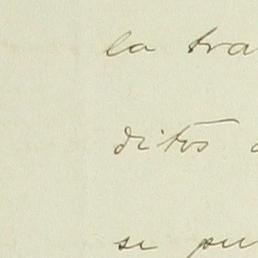 la tra
ditos
se pu